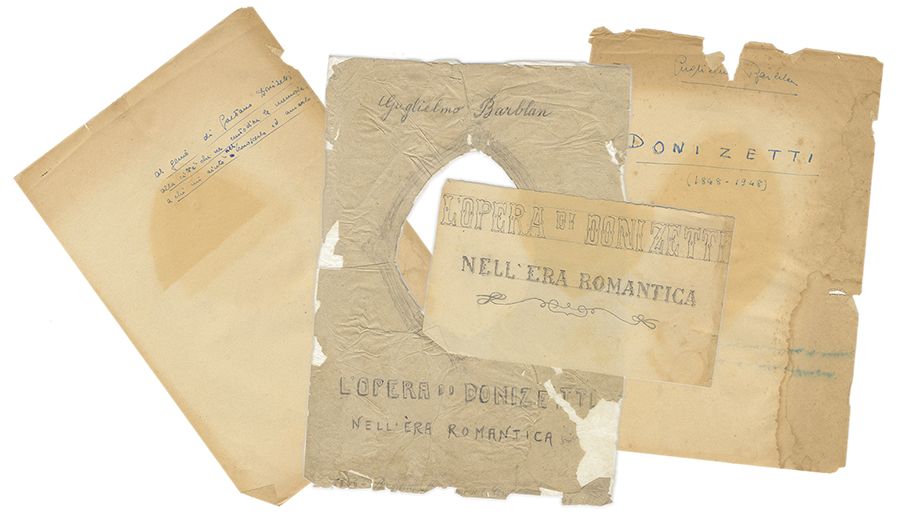 Al genio di Gaetano Donizetti
alla città che ne custodisce la memoria
a chi mi aiutò
Guglielmo Barblan
L'OPERA DI DONIZETTI
NELL'ÈRA ROMANTICA
L'OPERA DI DONIZETTI
NELL'ERA ROMANTICA
Guglielmo Barblan
DONIZETTI
(1848-1948)